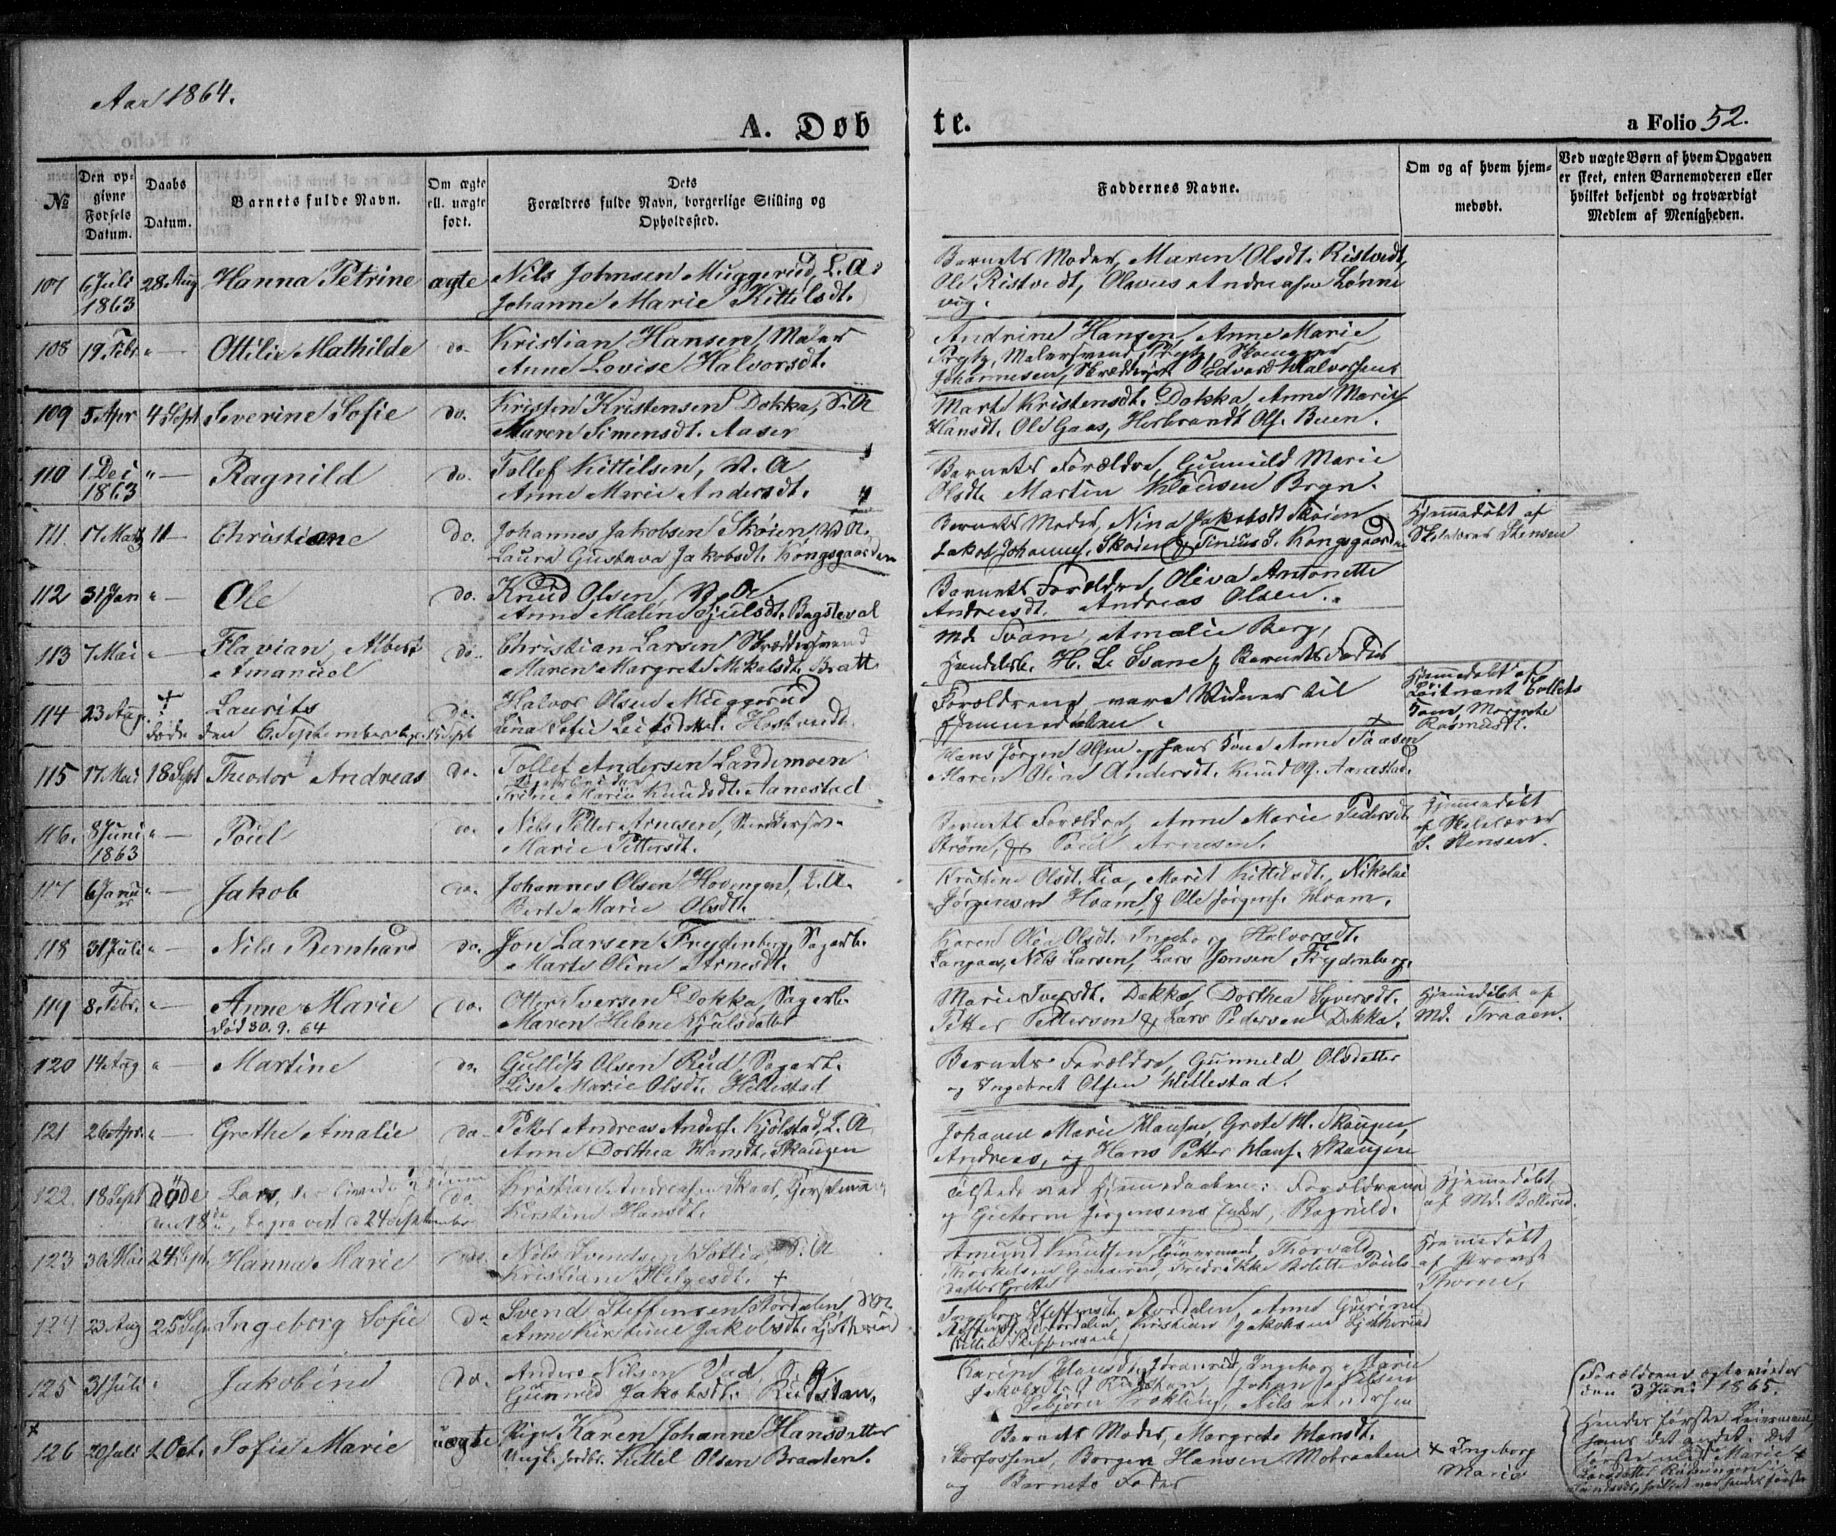 Aar 1864.
A. Døbte.
a Folio 52.
№
Den opgivne Fødsels Datum.
Daabs Datum.
Barnets fulde Navn.
Om ægte ell. uægte født.
Dets Forældres fulde Navn, borgerlige Stilling og Opholdssted.
Faddernes Navne.
Om og af hvem hjemmedøbt.
Ved uægte Børn af hvem Opgaven er skeet, enten Barnemoderen eller hvilket bekjendt og troværdigt Medlem af Menigheden.
107 6 Juli 1863 28 Aug Hanna Petrine ægte Nils Johnsen Muggerud, L. A.
Johanne Marie Kittilsdt.
Barnets Moder, Maren Olsdt. Ristvedt,
Ole Ristvedt, Olaves Andreasen Lønne
vig.
108 19 Febr " — Ottilie Mathilde do. Kristian Hansen, Maler
Anne Lovise Halvorsdt.
Andrine Hansen, Anne Marie
Malersvend
Johannesen, Edvard Halvorsen
109 5 Apr 4 Sept Severine Sofie do. Kristen Kristensen Dokka, S. A
Maren Simensdt. Aaser
Marte Kristensdt. Dokka, Anne Marie
Hansdt. Ole Gaas, Herbrandt Ols. Been.
110 1 Dec 1863 " — Ragnild do. Tollef Kittilsen, N. A
Anne Marie Andersdt.
Barnets Forældre, Gunnild Marie
Olsdt. Martin Klausen Bryn.
111. 17 Marts 11 — Christiane do. Johannes Jakobsen Skøien, N. A.
Laura Gustava Jakobsdt. Kongsgaarden
Barnets Moder, Nina Jakobsdt. Skøien
Jakob Johannes. Skøien & Tinius S. Kongsgaarden
Hjemmedøbt af
Skolelærer Stensen
112 31 Jan " — Ole do. Knud Olsen, N. A.
Anne Malene Hjulsdt. Bagstevol
Barnets Forældre, Oliva Antonette
Andreasdt. Andreas Olsen.
113 7 Mai " — Flavian Albert
Amanuel do. Christian Larsen Skræddersvend
Maren Margrete Mikalsdt. Bratt
Md. Svam, Amalie Berg,
Handelsb. H. L. Svane & Barnets Fader
114 23 Aug. + Laurits do. Halvor Olsen Muggerud
døde den 6 September begr. 15 Sept Lina Sofie Leifsdatter. Hostvedt.
Forældrene vare Vidner til
Hjemmedaaben.
Hjemmedøbt af
Løitnant Collets
Kone Margrete
Rasmusdt.
115 17 Mai 18 Sept Theodor Andreas do. Tollef Andersen Landemoen
Trine Marie Knudsdt. Aanestad
Hans Jørgen Olsen og hans Kone Anne Faasen
Maren Oline Andersdt. Knud Ols. Aanestad.
116. 8 Juni 1863 " — Poul do. Nils Petter Arnesen,
Marie Pettersdt.
Barnets Forældre, Anne Marie Pedersdt.
Strøm, & Poul Arnesen.
Hjemmedøbt
af Skolelærer
S. Stensen.
117 6 " — Jakob do. Johannes Olsen Hovengen, L. A.
Berte Marie Olsdt.
Kristine Olsdt. Lia, Marit Kittilsdt., Nikolai
Jørgensen Hvam, & Ole Jørgens. Hvam.
118 31 Juli " — Nils Bernhard do. Jon Larsen Frydenberg, Sagarb.
Marte Oline Arnesdt.
Karen Olea Olsdt. Ingebo og Halvorsdt.
Langaas, Nils Larsen, Lars Jonsen Frydenberg.
119 8 Febr. " — Anne Marie do. Otter Iversen Dokka, Sagarb.
død 30.9.64 Maren Helene Hjulsdatter
Marie Iversdt. Dokka, Dorthea Syversdt.
Petter Pettersen & Lars Pedersen Dokka.
Hjemmedøbt af
Md. Traaen.
120 14 Aug " — Martine do. Gullik Olsen Rud, Sagarb.
Lise Marie Olsdt. Hillestad
Barnets Forældre, Gunneld Olsdatter
og Ingebret Olsen Hillestad.
121 26 Apr. " — Grethe Amalie do. Petter Andreas Anders. Kjølstad, L. A
Anne Dorthea Hansdt. Skaugen
Johanne Marie Hansen, Grete H. Skaugen,
Andreas, og Hans Petter Hans. Skaugen
122. 18 Sept døde Lars, do. Kristian Andreasen Skaar,
den 18de, begravet d 24 September Kirstine Hansdt.
Tilstede ved Hjemmedaaben: Forældrene
og Gieterne Jørgensens Enke, Ragnild.
Hjemmedøbt
af Md. Bollerud.
123 30 Mai 24 Sept. Hanna Marie do. Nils Svendsen Sollie, S. A
Kristiane Helgesdt. +
Amund Knudsen, Thorvald
Thorkelsen Fredrikke Bolette Pouls
datter
Hjemmedøbt
af Provst
Thorne.
124 23 Aug 25 Sep Ingeborg Sofie do. Svend Steffensen Stordalen,
Anne Kirstine Jakobsdt.
Ingeborg Steffensdt. Stordalen, Anne Gurine
Kristian Jakobsen
125 31 Juli " Jakobine do. Anders Nilsen Ved, S. A.
Gunned Jakobsdt. Rudstan,
Karen Hansdt. Ingeborg Marie
Jakobsdt. Rudstan, Johan Nilsen
Nils Andersen
126 20 Juli 2 Oct. Sofie Marie uægte Pige Karen Johanne Hansdatter
Ungk. Jordbr. Kittil Olsen Braaten.
Barnets Moder, Margrete Hansdt.
Storfossene, Borger Hansen Mobraaten
og Barnets Fader
+ Ingeborg
Marie
Forældrene
den 3 Juni 1865.
Hendes første Leiermaal,
hans det andet. det
første med Marie